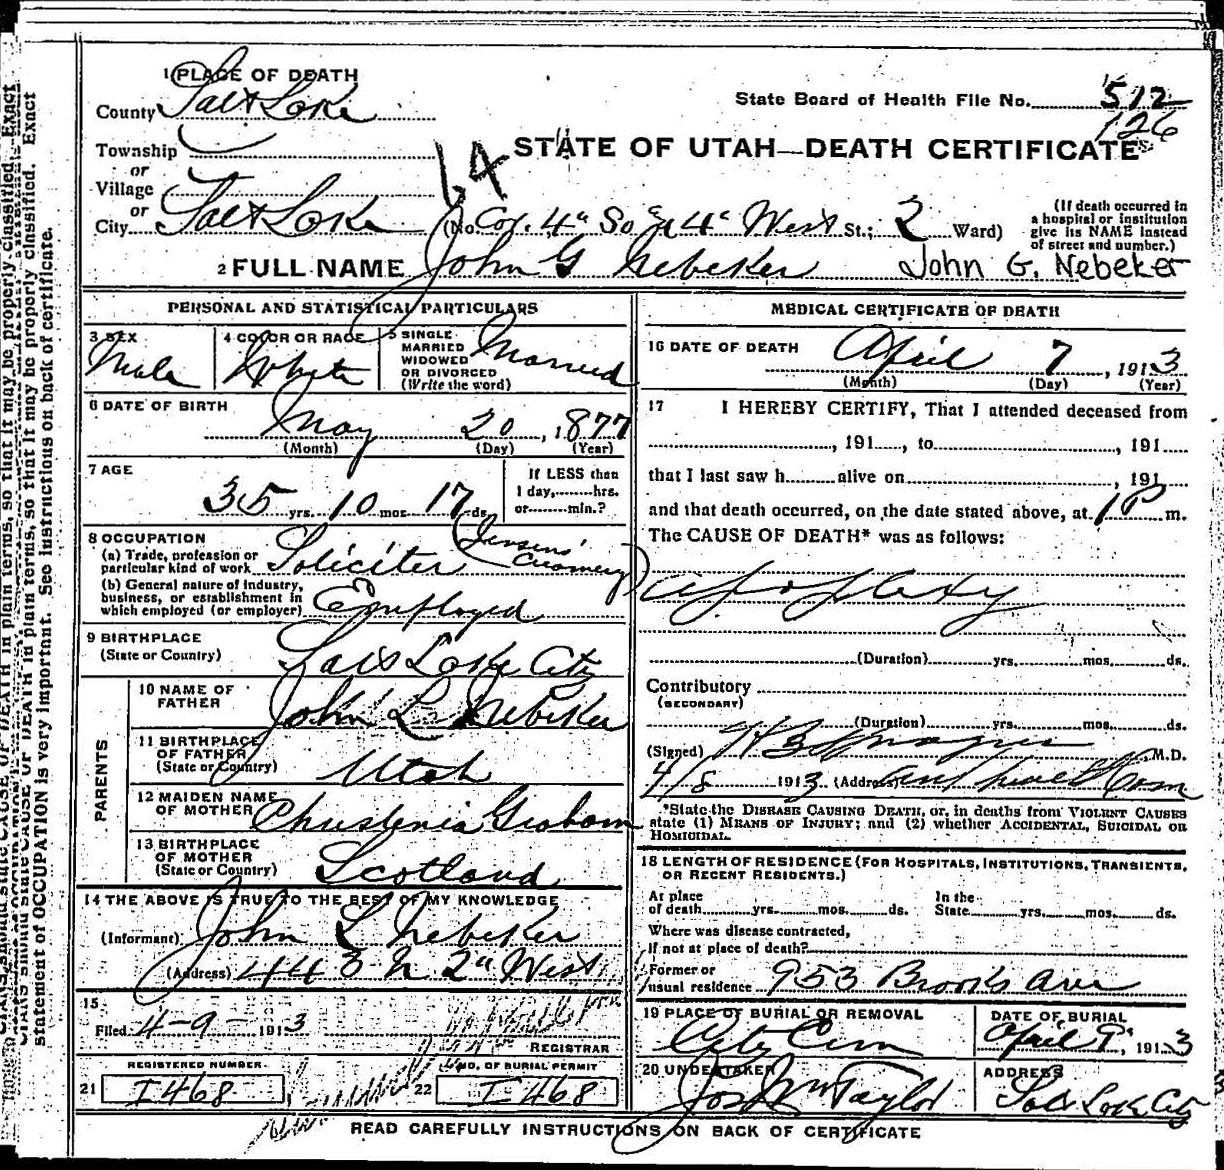 1 PLACE OF DEATH
County Salt Lake
State Board of Health File No. 512
126
Township
or
Village
14
STATE OF UTAH—DEATH CERTIFICATE
or
City Salt Lake (No. Cor. 4" So & 4" West St.; 2 Ward)
(If death occurred in a hospital or institution give its NAME instead of street and number.)
2 FULL NAME John G Nebeker John G. Nebeker
PERSONAL AND STATISTICAL PARTICULARS
3 SEX Male
4 COLOR OR RACE White
5 SINGLE MARRIED WIDOWED OR DIVORCED (Write the word) Married
6 DATE OF BIRTH
May 20, 1877
(Month) (Day) (Year)
7 AGE
35 yrs. 10 mos. 17 ds.
If LESS than 1 day, hrs. or min.?
8 OCCUPATION
(a) Trade, profession or particular kind of work Soliciter Jensens' Creamery
(b) General nature of industry, business, or establishment in which employed (or employer) Employed
9 BIRTHPLACE
(State or Country) Salt Lake City
PARENTS
10 NAME OF FATHER John L. Nebeker
11 BIRTHPLACE OF FATHER
(State or Country) Utah
12 MAIDEN NAME OF MOTHER Christenia Graham
13 BIRTHPLACE OF MOTHER
(State or Country) Scotland
14 THE ABOVE IS TRUE TO THE BEST OF MY KNOWLEDGE
(Informant) John L Nebeker
(Address) 443 N 2" West
15
Filed 4-9- 1913
REGISTRAR
REGISTERED NUMBER.
21 I468
NO. OF BURIAL PERMIT
22 I468
MEDICAL CERTIFICATE OF DEATH
16 DATE OF DEATH April 7, 1913
(Month) (Day) (Year)
17 I HEREBY CERTIFY, That I attended deceased from
, 191 , to , 191
that I last saw h alive on , 191
and that death occurred, on the date stated above, at 1 P m.
The CAUSE OF DEATH* was as follows:
Apoplexy
(Duration) yrs. mos. ds.
Contributory
(SECONDARY)
(Duration) yrs. mos. ds.
(Signed) H B Sprague M.D.
4/8 1913 (Address)
*State the DISEASE CAUSING DEATH, or, in deaths from VIOLENT CAUSES
state (1) MEANS OF INJURY; and (2) whether ACCIDENTAL, SUICIDAL OR
HOMICIDAL.
18 LENGTH OF RESIDENCE (FOR HOSPITALS, INSTITUTIONS, TRANSIENTS,
OR RECENT RESIDENTS.)
At place of death yrs. mos. ds. In the State yrs. mos. ds.
Where was disease contracted,
If not at place of death?
Former or usual residence 953 Brooks Ave
19 PLACE OF BURIAL OR REMOVAL
City Cem
DATE OF BURIAL
April 9", 1913
20 UNDERTAKER
Jos Wm Taylor
ADDRESS
Salt Lake City
READ CAREFULLY INSTRUCTIONS ON BACK OF CERTIFICATE
CIANS should state CAUSE OF DEATH in plain terms, so that it may be properly classified. Exact
statement of OCCUPATION is very important. See instructions on back of certificate.